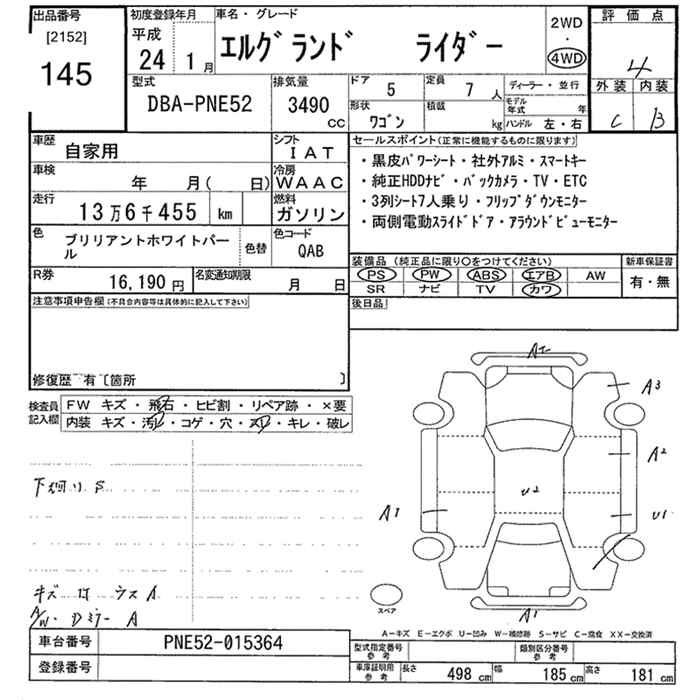 出品番号
[2152]
145
初度登録年月
平成
24 1月
車名・グレード
エルグランド ライダー
2WD
・
4WD
評価点
4
外装 内装
C B
型式
DBA-PNE52
排気量
3490 cc
ドア 5
定員 7人
形状 ワゴン
積載 kg
ディーラー・並行
モデル年式 年
ハンドル 左・右
車歴 自家用
シフト IAT
車検 年 月( 日)
冷房 WAAC
走行 13万6千455 km
燃料 ガソリン
色 ブリリアントホワイトパール
色替
色コード QAB
R券 16,190円
名変通知期限 月 日
セールスポイント(正常に機能するものに限ります)
・黒皮パワーシート・社外アルミ・スマートキー
・純正HDDナビ・バックカメラ・TV・ETC
・3列シート7人乗り・フリップダウンモニター
・両側電動スライドドア・アラウンドビューモニター
装備品 (純正品に限り○をつけてください)
新車保証書
PS PW ABS エアB AW
SR ナビ TV カワ
有・無
後日品
注意事項申告欄(不具合内容等は具体的に記入して下さい)
修復歴 有〔箇所 〕
検査員記入欄
FW キズ・飛石・ヒビ割・リペア跡・×要
内装 キズ・汚れ・コゲ・穴・スレ・キレ・破レ
下廻り S
キズ は ウス A
A/W・Dミラー A
A1
A3
A2
U2
A1
U1
A1
スペア
A-キズ E-エクボ U-凹み W-補修跡 S-サビ C-腐食 XX-交換済
車台番号 PNE52-015364
登録番号
型式指定番号 参考
類別区分番号 参考
車庫証明用 参考
長さ 498 cm 幅 185 cm 高さ 181 cm